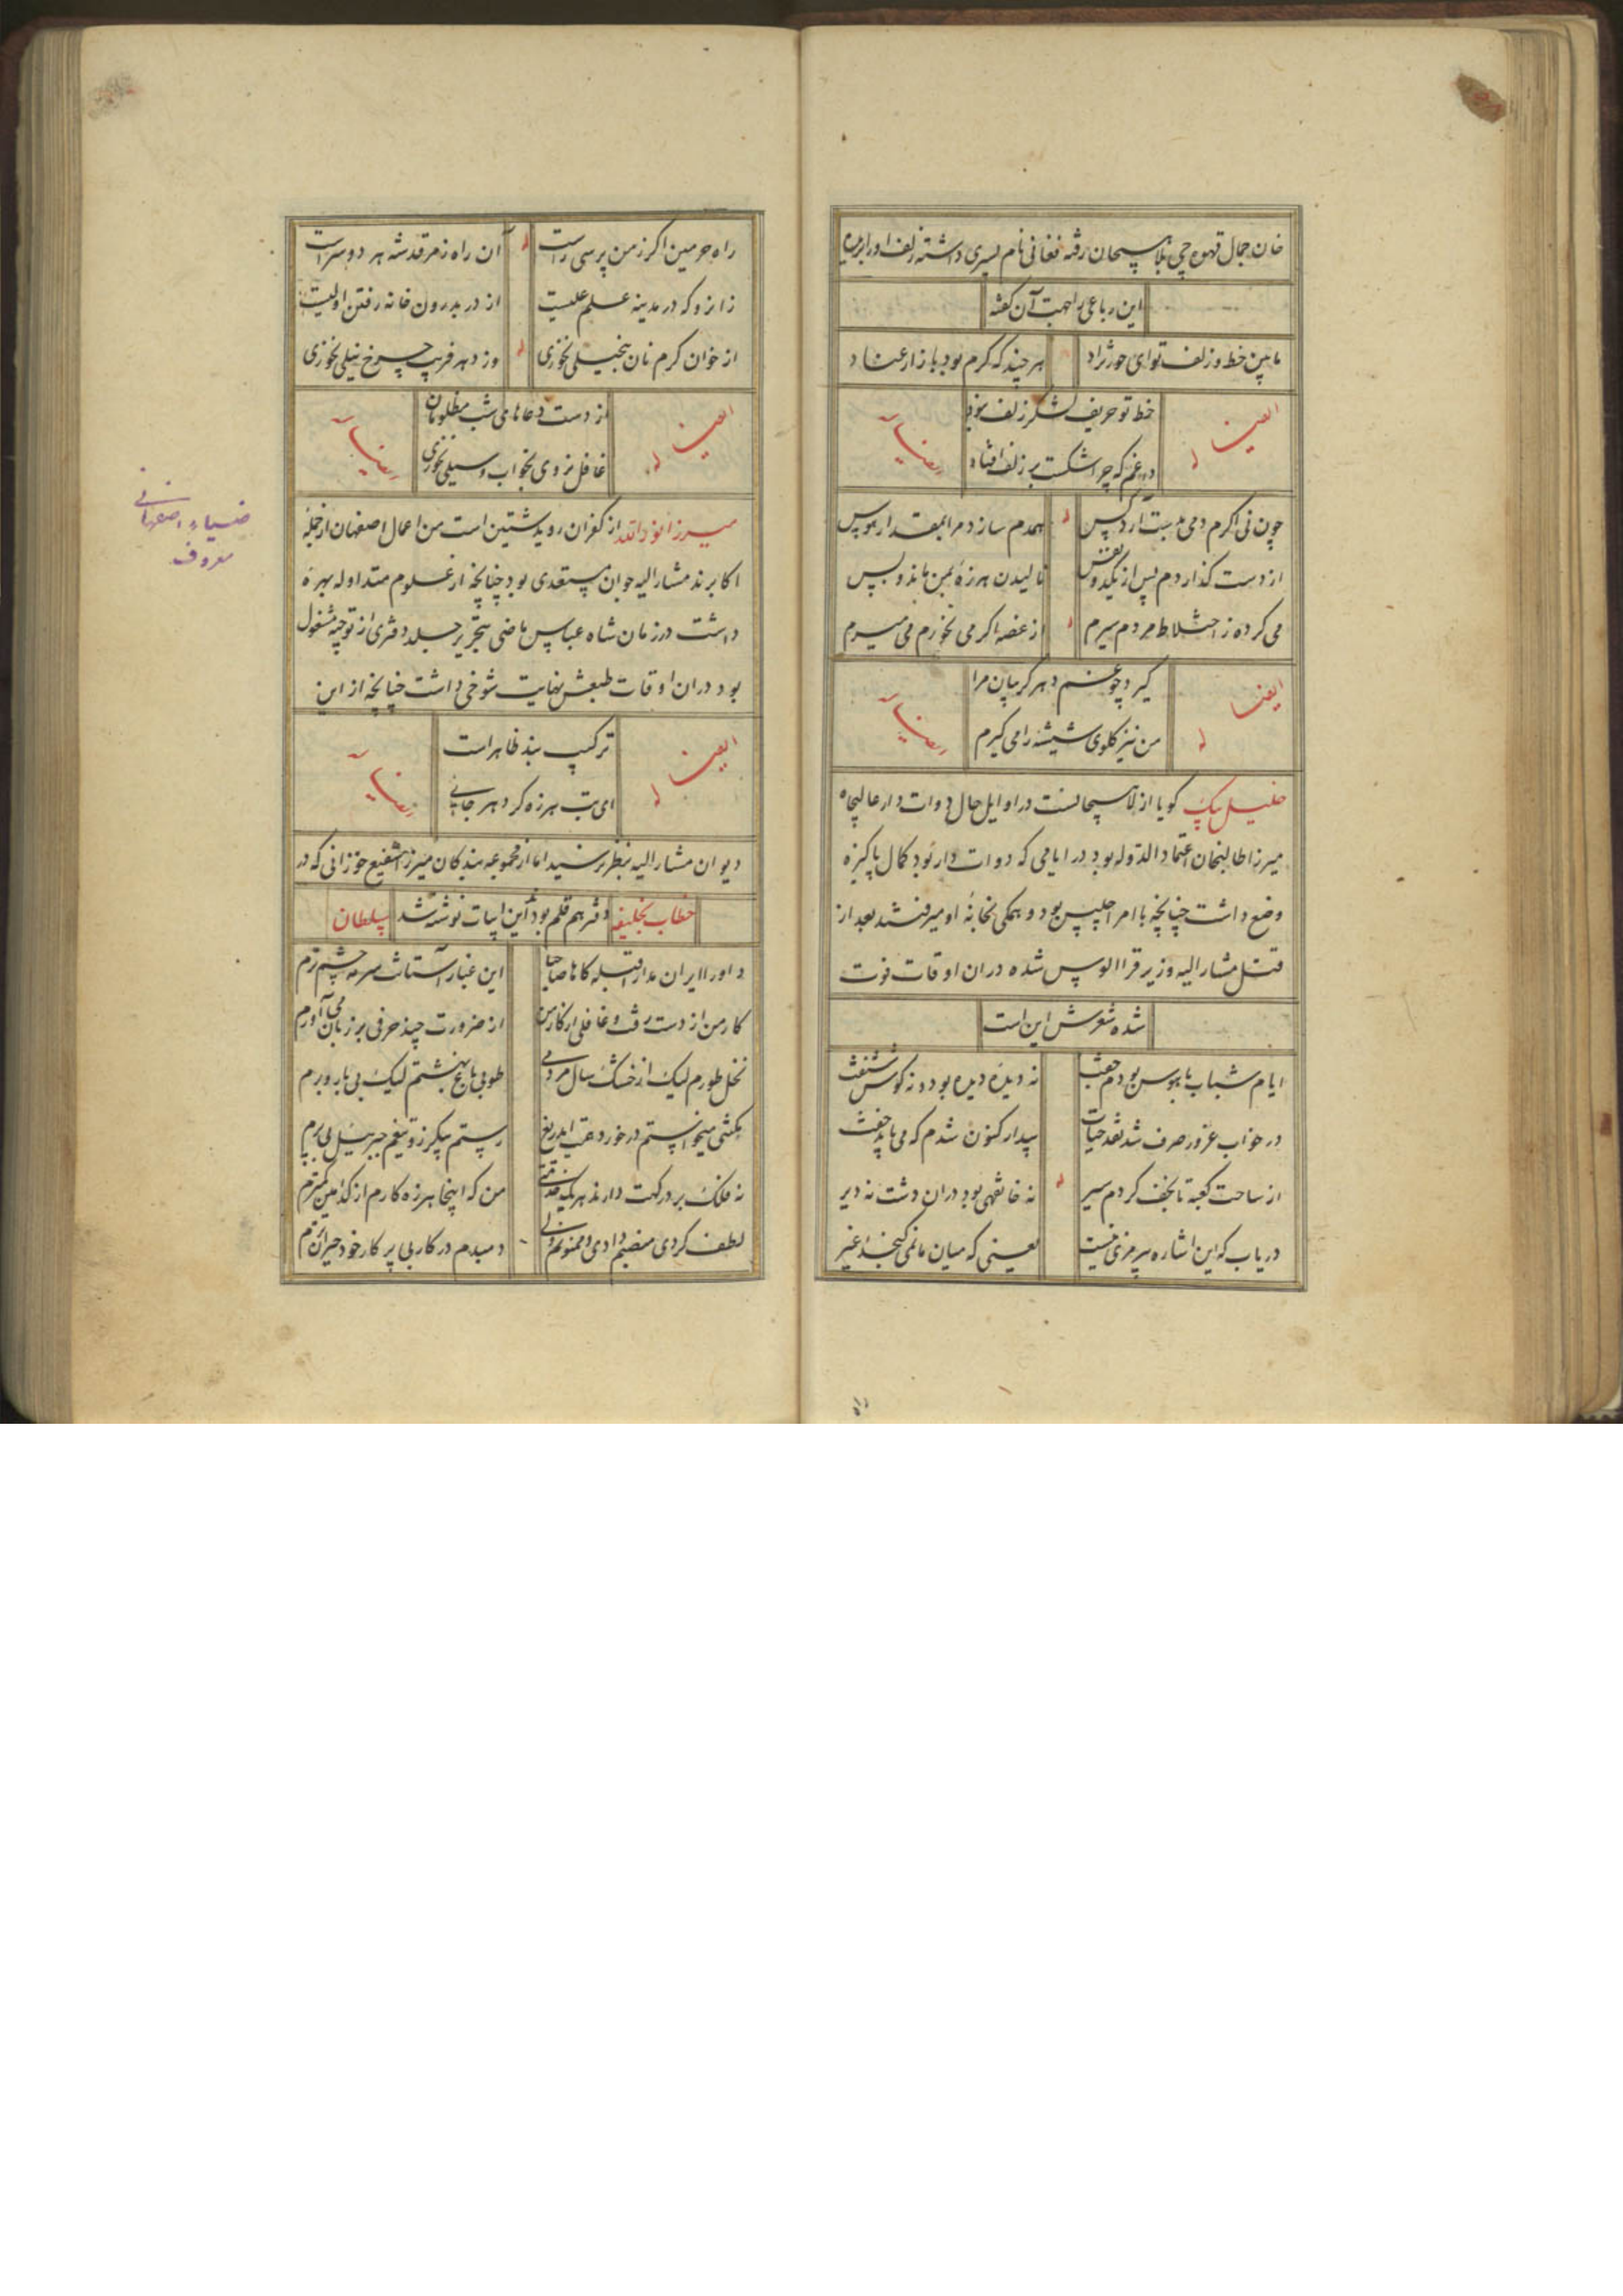 خان جمال قهوه چی بلاهیجان رفته فغانی نام پسری داشته زلف او را بریده
این رباعی بواجهت آن گفته
مابین خط و زلف تو ای حور نژاد
هر چند که گرم بود بازار عناد
ایضاً له
خط تو حریف لشکر زلف نبود
در غم که چرا شکست بر زلف افتاد
ایضاً
چون نی اگرم دمی بدست آرد کس
همدم سازد مرا بمقدار هوس
از دست گذاردم پس از یکدو نفس
نالیدن هرزه بمن ماند و بس
می کرده ز اختلاط مردم سیرم
از غصه اگر می نخورم می میرم
ایضاً له
گیرد چو غم دهر گریبان مرا
من نیز گلوی شیشه را می گیرم
ایضاً
خلیل بیک گویا از لاهیجانست در اوایل حال دوات دار عالیجاه
میرزا طالبخان اعتماد الدوله بود در ایامی که دوات دار بود کمال پاکیزه
وضع داشت چنانچه با امرا جلیس بود و همگی بخانه او میرفتند بعد از
قتل مشار الیه وزیر قرا الوس شده در آن اوقات فوت
شده شعرش این است
ایام شباب با هوس بودم جفت
نه دیده دیده بود و نه گوش شنفت
در خواب غرور صرف شد نقد حیات
بیدار کنون شدم که می باید خفت
از ساحت کعبه تا نجف کردم سیر
نه خانقهی بود در آن دشت نه دیر
دریاب که این اشاره بی رمزی نیست
یعنی که میان ما نمی گنجد غیر
راه حرمین اگر ز من پرسی راست
آن راه ز مرقد شه هر دو سراست
زانرو که در مدینه علم علیست
از در بدرون خانه رفتن اولیست
از خوان کرم نان بخیلی نخوری
وز دهر فریب چرخ نیلی نخوری
ایضاً له
از دست دعاهای شب مظلومان
غافل نروی بخواب و سیلی نخوری
ایضاً
میرزا نور الله از کفران رویدشتین است من اعمال اصفهان از جمله
اکابرند مشار الیه جوان مستعدی بود چنانچه از علوم متداوله بهره
داشت در زمان شاه عباس ماضی بتحریر جلد دفتری از توجیه مشغول
بود در آن اوقات طبعش نهایت شوخی داشت چنانچه از این
ایضاً له
ترکیب بند ظاهر است
ای بت هرزه گرد هر جایی
ایضاً
دیوان مشار الیه بنظر نرسید اما از مجموعه بندگان میرزا شفیع خوزانی که در
خطاب بخلیفه
دفتر هم قلم بود این ابیات نوشته شد
سلطان
داورا ایران مدارا قبله گاها صاحبا
این غبار آستانت سرمه چشم ترم
کار من از دست رفت و غافلی از کار من
از ضرورت چند حرفی بر زبان می آورم
نخل طورم لیک از خشک سال مردمی
طوبی باغ بهشتم لیک بی بار و برم
رستم بی گرز و تیغم جبرئیل بی پرم
نه فلک بر درگهت دارند هر یک خدمتی
من که اینجا هرزه کارم از کدامین کمترم
لطف کردی منصبم دادی و ممنونم ولی
دمبدم در کار بی پرکار خود حیرانترم
ضیاء اصفهانی
معروف